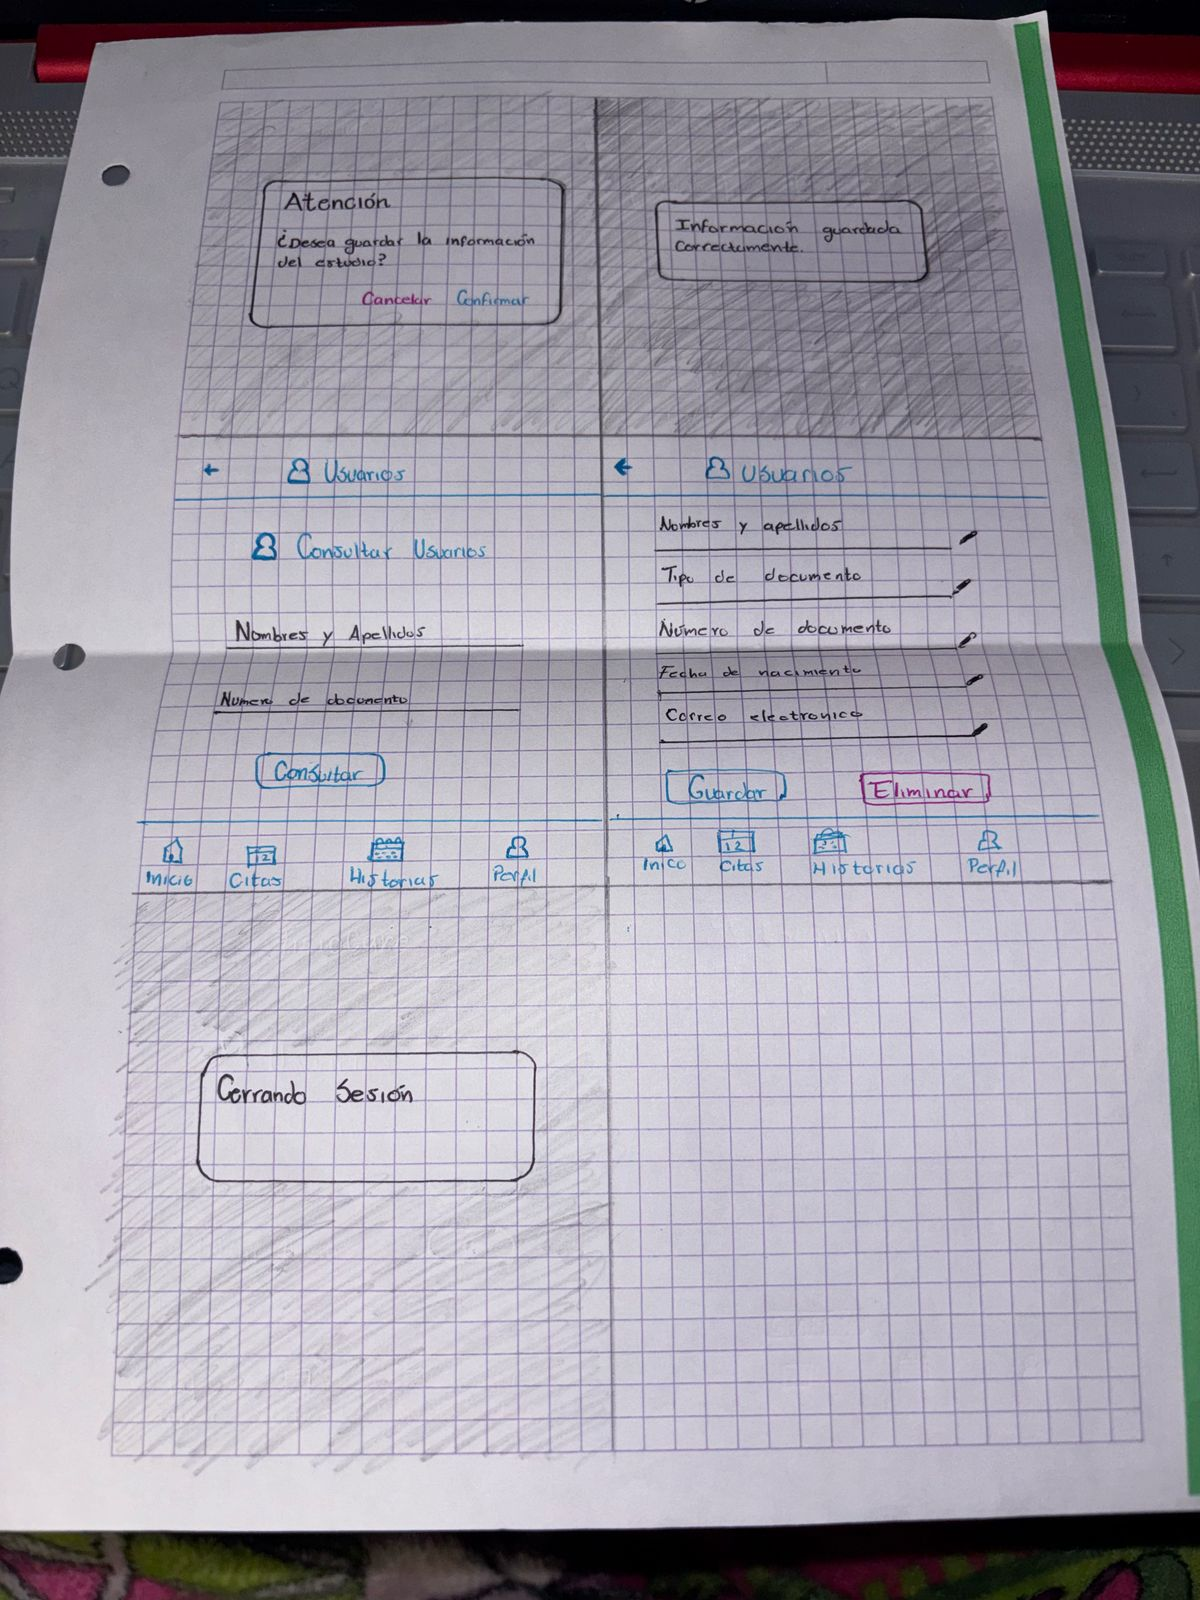 Atención
¿Desea guardar la información
del estudio?
Cancelar Confirmar
Información guardada
correctamente.
← Usuarios
Consultar Usuarios
Nombres y Apellidos
Numero de documento
Consultar
Inicio Citas Historias Perfil
← Usuarios
Nombres y apellidos
Tipo de documento
Número de documento
Fecha de nacimiento
Correo electronico
Guardar Eliminar
Inico Citas Historias Perfil
Cerrando Sesión